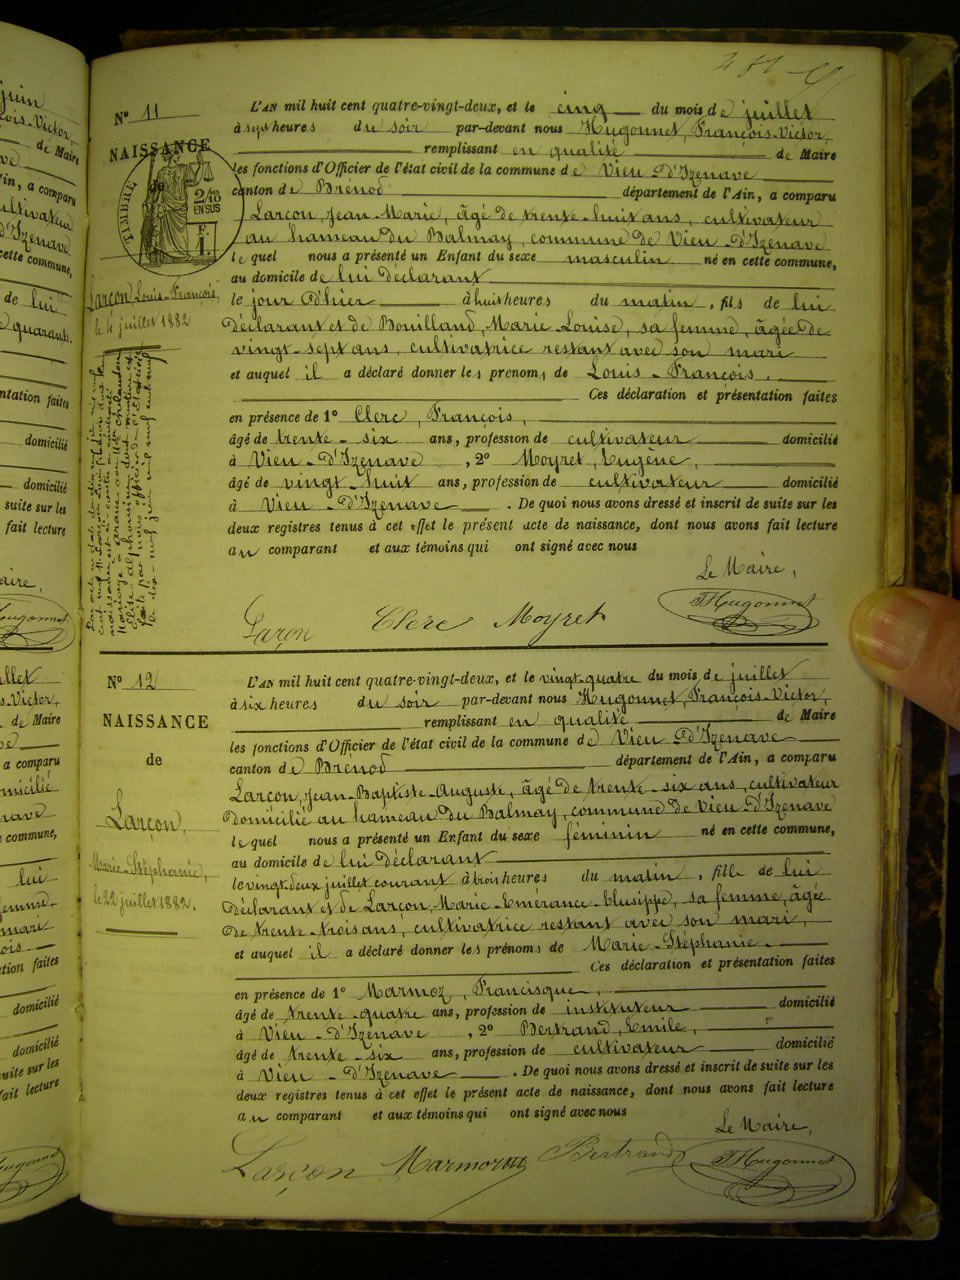 N° 11
NAISSANCE
TIMBRE
2/10
EN SUS
Larçon, Louis-François,
le 4 juillet 1882
L'AN mil huit cent quatre-vingt-deux, et le cinq du mois de juillet
à sept heures du soir par-devant nous Hugonnet, François-Victor,
remplissant en qualité de Maire
les fonctions d'Officier de l'état civil de la commune de Vieu-d'Izenave
canton de Brenod département de l'Ain, a comparu
Larçon, Jean-Marie, âgé de trente-huit ans, cultivateur
au hameau du Balmay, commune de Vieu-d'Izenave
lequel nous a présenté un Enfant du sexe masculin né en cette commune,
au domicile de lui déclarant
le jour d'hier à huit heures du matin, fils de lui
déclarant et de Bouilland, Marie Louise, sa femme, âgée de
vingt-sept ans, cultivatrice restant avec son mari
et auquel il a déclaré donner les prénoms de Louis-François.
Ces déclaration et présentation faites
en présence de 1° Clerc, François,
âgé de trente-six ans, profession de cultivateur domicilié
à Vieu-d'Izenave, 2° Moyret, Eugène,
âgé de vingt-huit ans, profession de cultivateur domicilié
à Vieu-d'Izenave. De quoi nous avons dressé et inscrit de suite sur les
deux registres tenus à cet effet le présent acte de naissance, dont nous avons fait lecture
au comparant et aux témoins qui ont signé avec nous
Le Maire,
Larçon Clerc Moyret Hugonnet
N° 12
NAISSANCE
de
Larçon,
Marie-Stéphanie,
le 22 juillet 1882.
L'AN mil huit cent quatre-vingt-deux, et le vingt-quatre du mois de juillet
à six heures du soir par-devant nous Hugonnet, François-Victor,
remplissant en qualité de Maire
les fonctions d'Officier de l'état civil de la commune de Vieu-d'Izenave
canton de Brenod département de l'Ain, a comparu
Larçon, Jean-Baptiste-Auguste, âgé de trente-six ans, cultivateur
domicilié au hameau du Balmay, commune de Vieu-d'Izenave
lequel nous a présenté un Enfant du sexe féminin né en cette commune,
au domicile de lui déclarant
le vingt-deux juillet courant à trois heures du matin, fille de lui
déclarant et de Larçon, Marie-Emérance-Elusippe, sa femme, âgée
de trente-trois ans, cultivatrice restant avec son mari,
et auquel il a déclaré donner les prénoms de Marie-Stéphanie.
Ces déclaration et présentation faites
en présence de 1° Marmoz, Francisque,
âgé de trente-quatre ans, profession de instituteur domicilié
à Vieu-d'Izenave, 2° Bertrand, Emile,
âgé de trente-six ans, profession de cultivateur domicilié
à Vieu-d'Izenave. De quoi nous avons dressé et inscrit de suite sur les
deux registres tenus à cet effet le présent acte de naissance, dont nous avons fait lecture
au comparant et aux témoins qui ont signé avec nous
Le Maire,
Larçon Marmoz Bertrand Hugonnet